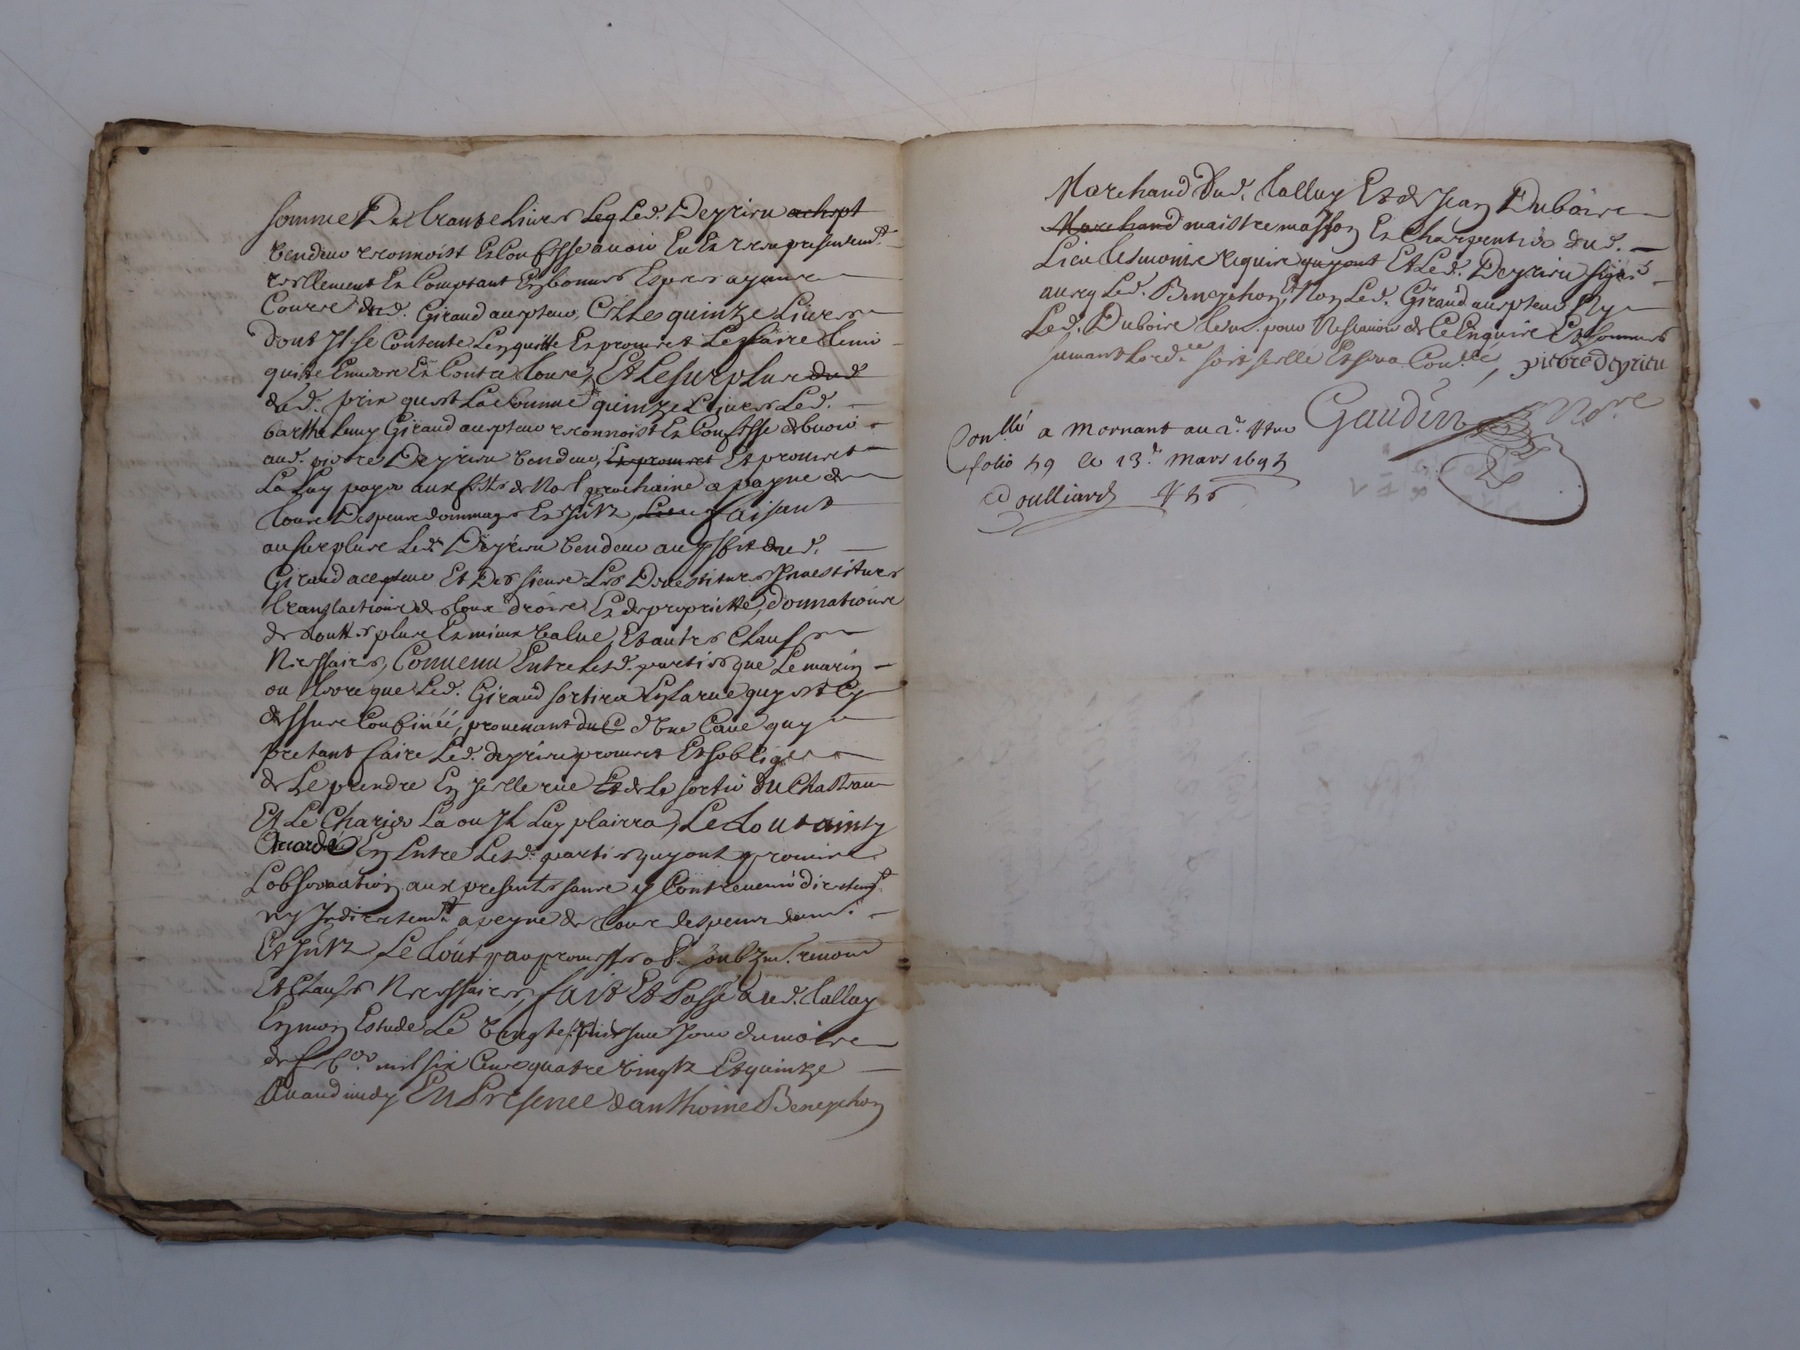 somme De trante livres leq led. Deyrieu achept
vendeur reconnoist Et Confesse avoir Eu Et receu presentemt.
reellement Et Comptant En bonnes Especes ayans
Cours dud. Giraud acepteur, Cest quinze Livres
dont Il se Contente Len quitte Et promet Le faire tenir
quitte Envers Et Contre tous, Et Le surplus dud
dud. prix quest La somme quinze Livres Led.
barthelemy Giraud acepteur reconnoist Et Confesse debvoir
aud. pierre Deyrieu vendeur, Et promet Et promet
La luy payer aux festes de Noel prochaine a payne de
tous Despens dommages Et Intz, faisant
au surplus Led. Deyrieu vendeur au proffit dud.
Giraud acepteur Et Des siens Les Devestitures Investitures
translations de tous droits Et de proprietté, donnations
de touttes plus Et mieux value, Et autres Clauses
Necessaires, Convenu Entre Lesd. parties que Le marin
ou terre que Led. Giraud sortira En La rue quy est Cy
dessus Confinéé, provenant du C dune Cave quy
pretant faire Led. deyrieu promet Et soblige
de Le prendre En Icelle rue Et de Le sortir du Chasteau
Et Le Charier La ou Il Luy plairra, Le tout ainsy
accordé En Entre Lesd. parties quy ont promis
Lobservation aux presentes sans y Contrevenir directemt.
ny Indirectemt. a peyne de tous despens dom.
Et Intz Le tout par promesses ob. soubzm. renon
Et Clauses Necessaires, fait Et Passé aud. talluy
En mon Estude Le vingt Jour du mois
de febver. mil six Cens quatre vingtz Et quinze
avand midy En Presence danthoine Benephon
Marchand dud. talluy Et de Jean Dubois
Marchand maistre masson Et Charpentier dud.
Lieu tesmoins requis quyont Et Led. Deyrieu signé
avecq Led. Benephon, Non Led. Giraud acepteur Ny
Led. Dubois tes. pour Ne scavoir de Ce Enquis Et sommés
suivant Lord.ce soit scellé Et sera Con.llé, pierre deyrieu
Gaudin Nore
Con.llé a Mornant au 2.
folio 59 le 13. Mars 1695